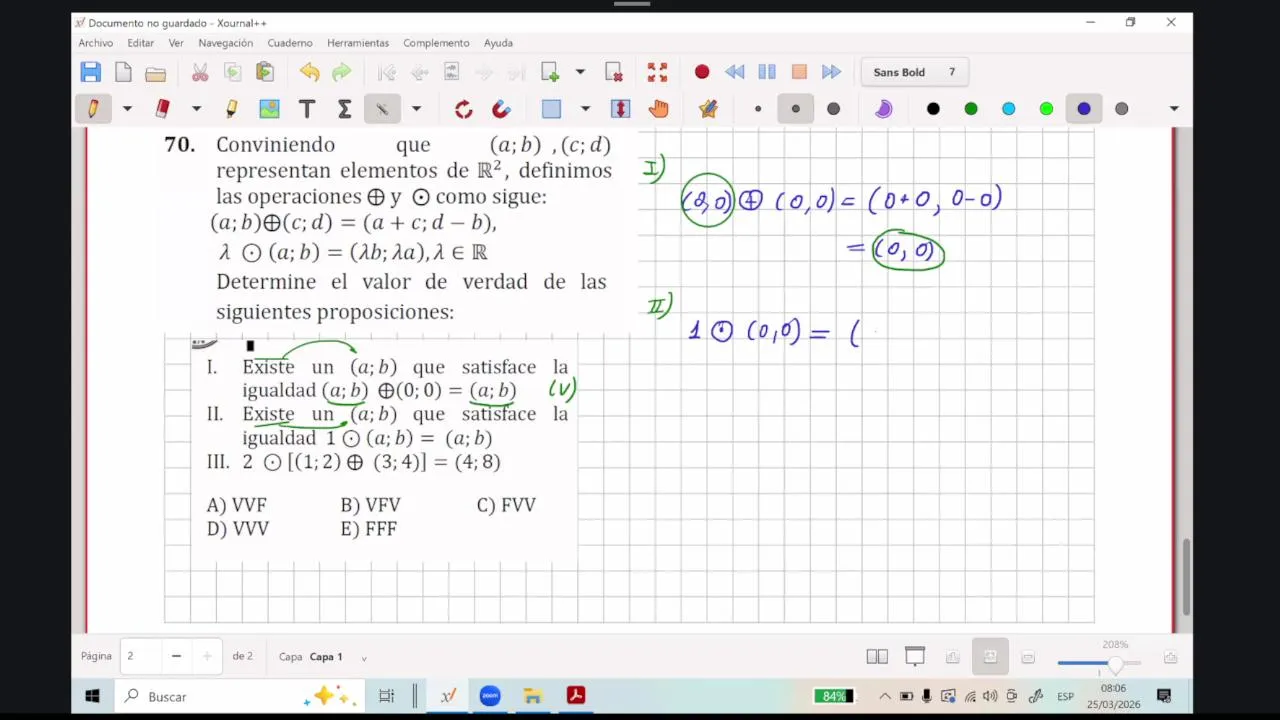 Documento no guardado - Xournal++
Archivo Editar Ver Navegación Cuaderno Herramientas Complemento Ayuda
Sans Bold 7
70. Conviniendo que (a; b) , (c; d)
representan elementos de ℝ², definimos
las operaciones ⊕ y ⊙ como sigue:
(a; b)⊕(c; d) = (a + c; d − b),
λ ⊙ (a; b) = (λb; λa), λ ∈ ℝ
Determine el valor de verdad de las
siguientes proposiciones:
I. Existe un (a; b) que satisface la
igualdad (a; b) ⊕(0; 0) = (a; b) (V)
II. Existe un (a; b) que satisface la
igualdad 1 ⊙ (a; b) = (a; b)
III. 2 ⊙ [(1; 2) ⊕ (3; 4)] = (4; 8)
A) VVF B) VFV C) FVV
D) VVV E) FFF
I)
(0,0) ⊕ (0,0) = (0+0, 0-0)
= (0, 0)
II)
1 ⊙ (0,0) = (
Página 2 de 2 Capa Capa 1 208%
Buscar 84% ESP 08:06
25/03/2026